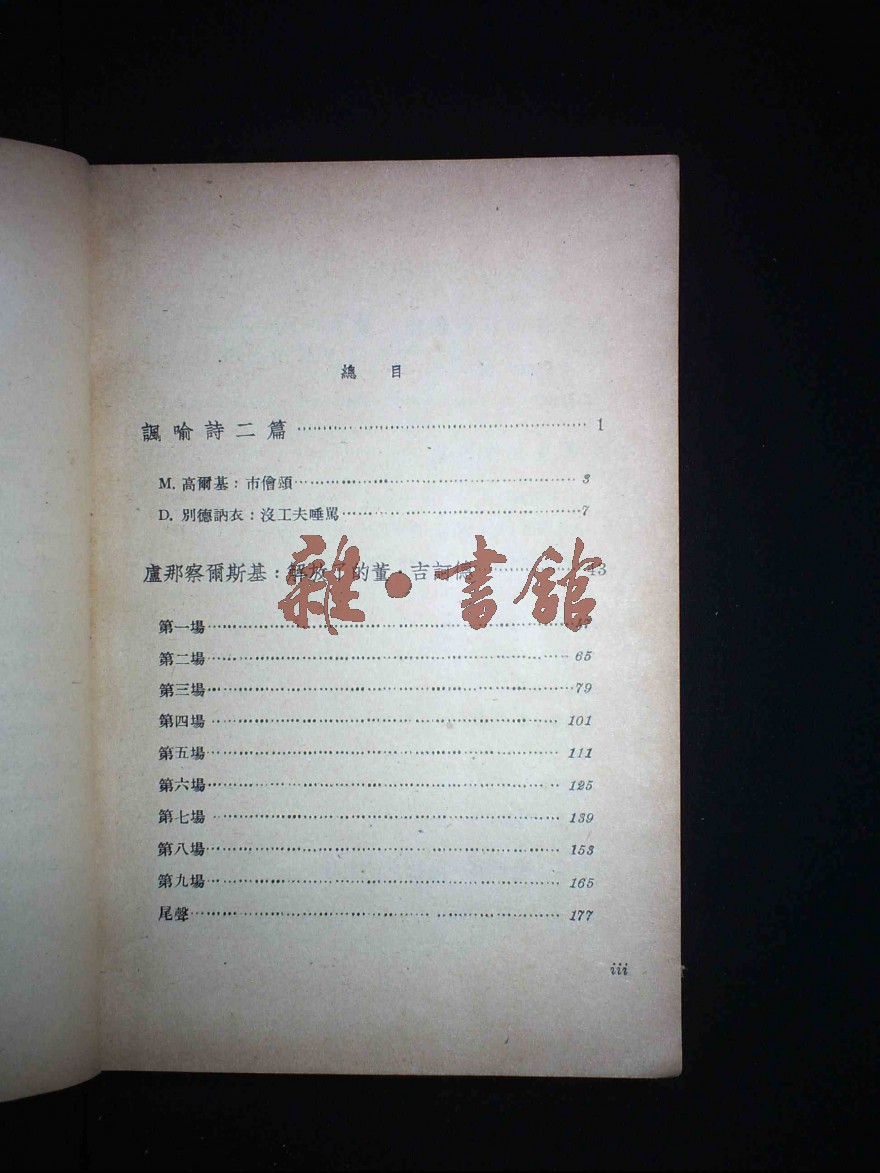 總目
諷喻詩二篇 1
M. 高爾基：市儈頌 3
D. 別德訥衣：沒工夫唾罵 7
盧那察爾斯基：解放了的董·吉訶德 43
雜·書館
第一場
第二場 65
第三場 79
第四場 101
第五場 111
第六場 125
第七場 139
第八場 153
第九場 165
尾聲 177
iii